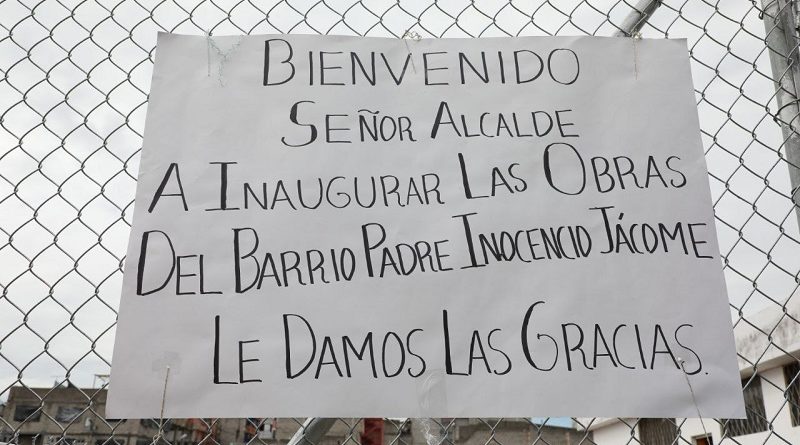 BIENVENIDO
SEÑOR ALCALDE
A INAUGURAR LAS OBRAS
DEL BARRIO PADRE INOCENCIO JÁCOME
LE DAMOS LAS GRACIAS.